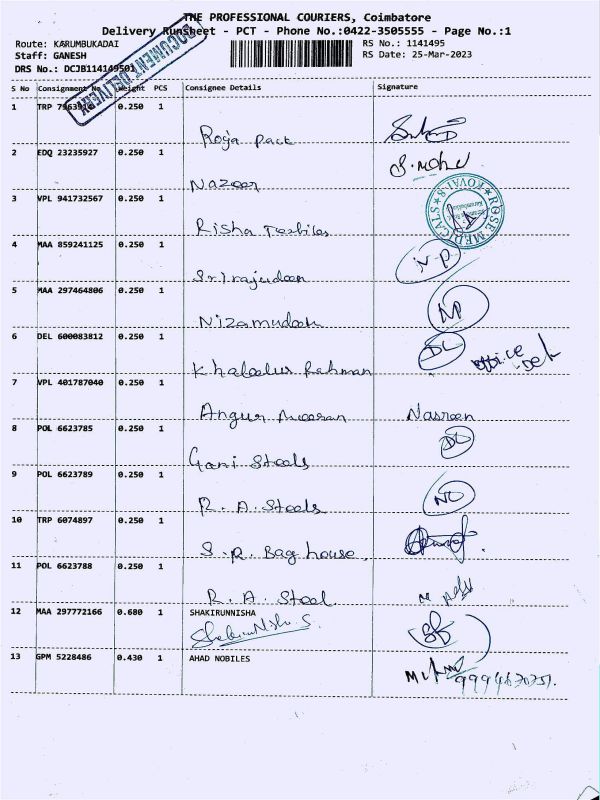 THE PROFESSIONAL COURIERS, Coimbatore
Delivery Runsheet - PCT - Phone No.:0422-3505555 - Page No.:1
Route: KARUMBUKADAI RS No.: 1141495
Staff: GANESH RS Date: 25-Mar-2023
DRS No.: DCJB114149501
DOCUMENT DELIVERY
S No Consignment No Weight PCS Consignee Details Signature
1 TRP 7963914 0.250 1
Roja Pack
2 EDQ 23235927 0.250 1
Nazeer S. Mohd
3 VPL 941732567 0.250 1
Risha Textiles ROSE MEDICALS KOVAI-8
4 MAA 859241125 0.250 1
Srirajudeen N-D
5 MAA 297464806 0.250 1
Nizamudeen NP
6 DEL 600083812 0.250 1
Khaleelur Rahman DL office Del
7 VPL 401787040 0.250 1
Angur Meeran Nasreen
8 POL 6623785 0.250 1
Gani Steels DL
9 POL 6623789 0.250 1
R. A. Steels
10 TRP 6074897 0.250 1
S. R. Bag house,
11 POL 6623788 0.250 1
R. A. Steel
12 MAA 297772166 0.680 1 SHAKIRUNNISHA
13 GPM 5228486 0.430 1 AHAD NOBILES